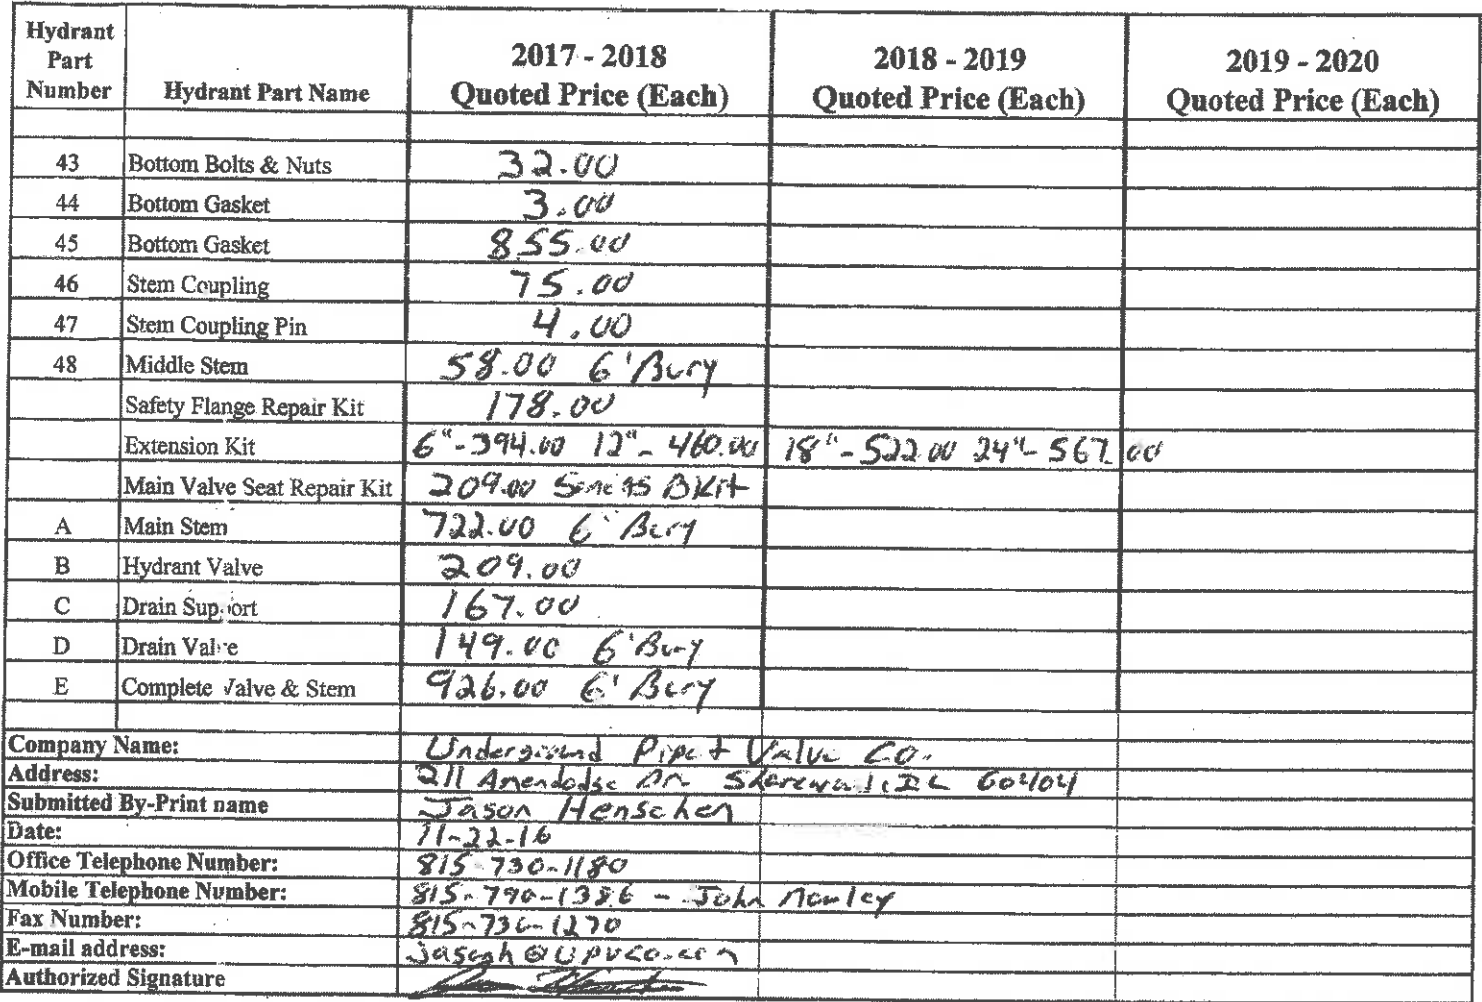 Hydrant Part Number Hydrant Part Name 2017 - 2018 Quoted Price (Each) 2018 - 2019 Quoted Price (Each) 2019 - 2020 Quoted Price (Each)
43 Bottom Bolts & Nuts 32.00
44 Bottom Gasket 3.00
45 Bottom Gasket 855.00
46 Stem Coupling 75.00
47 Stem Coupling Pin 4.00
48 Middle Stem 58.00 6' Bury
Safety Flange Repair Kit 178.00
Extension Kit 6"-394.00 12"- 460.00 18"-522.00 24"-567.00
Main Valve Seat Repair Kit 209.00 Same as B Kit
A Main Stem 722.00 6' Bury
B Hydrant Valve 209.00
C Drain Support 167.00
D Drain Valve 149.00 6' Bury
E Complete Valve & Stem 926.00 6' Bury
Company Name: Underground Pipe & Valve Co.
Address: 211 Dr Shorewood, IL 60404
Submitted By-Print name Jason Henschen
Date: 11-22-16
Office Telephone Number: 815-730-1180
Mobile Telephone Number: 815-790-1386 - John
Fax Number: 815-730-1270
E-mail address: jasonh@upvco.com
Authorized Signature